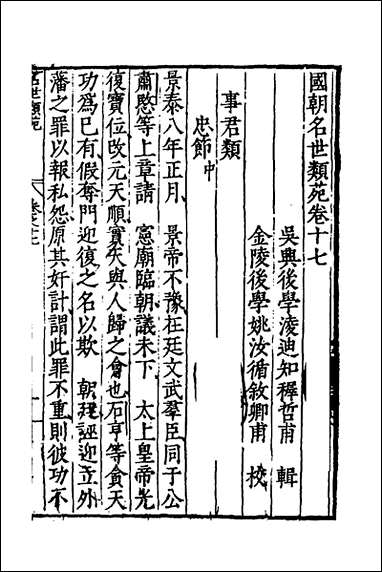 國朝名世類苑卷十七
吳興後學淩迪知穉哲甫 輯
金陵後學姚汝循敘卿甫 校
事君類
忠節中
景泰八年正月 景帝不豫在廷文武羣臣同于公
肅愍等上章請 憲廟臨朝議未下 太上皇帝光
復寶位改元天順實天與人歸之會也石亨等貪天
功爲已有假奪門迎復之名以欺 朝理誣迎立外
藩之罪以報私怨原其奸計謂此罪不重則彼功不
名世類苑 卷之十七 一